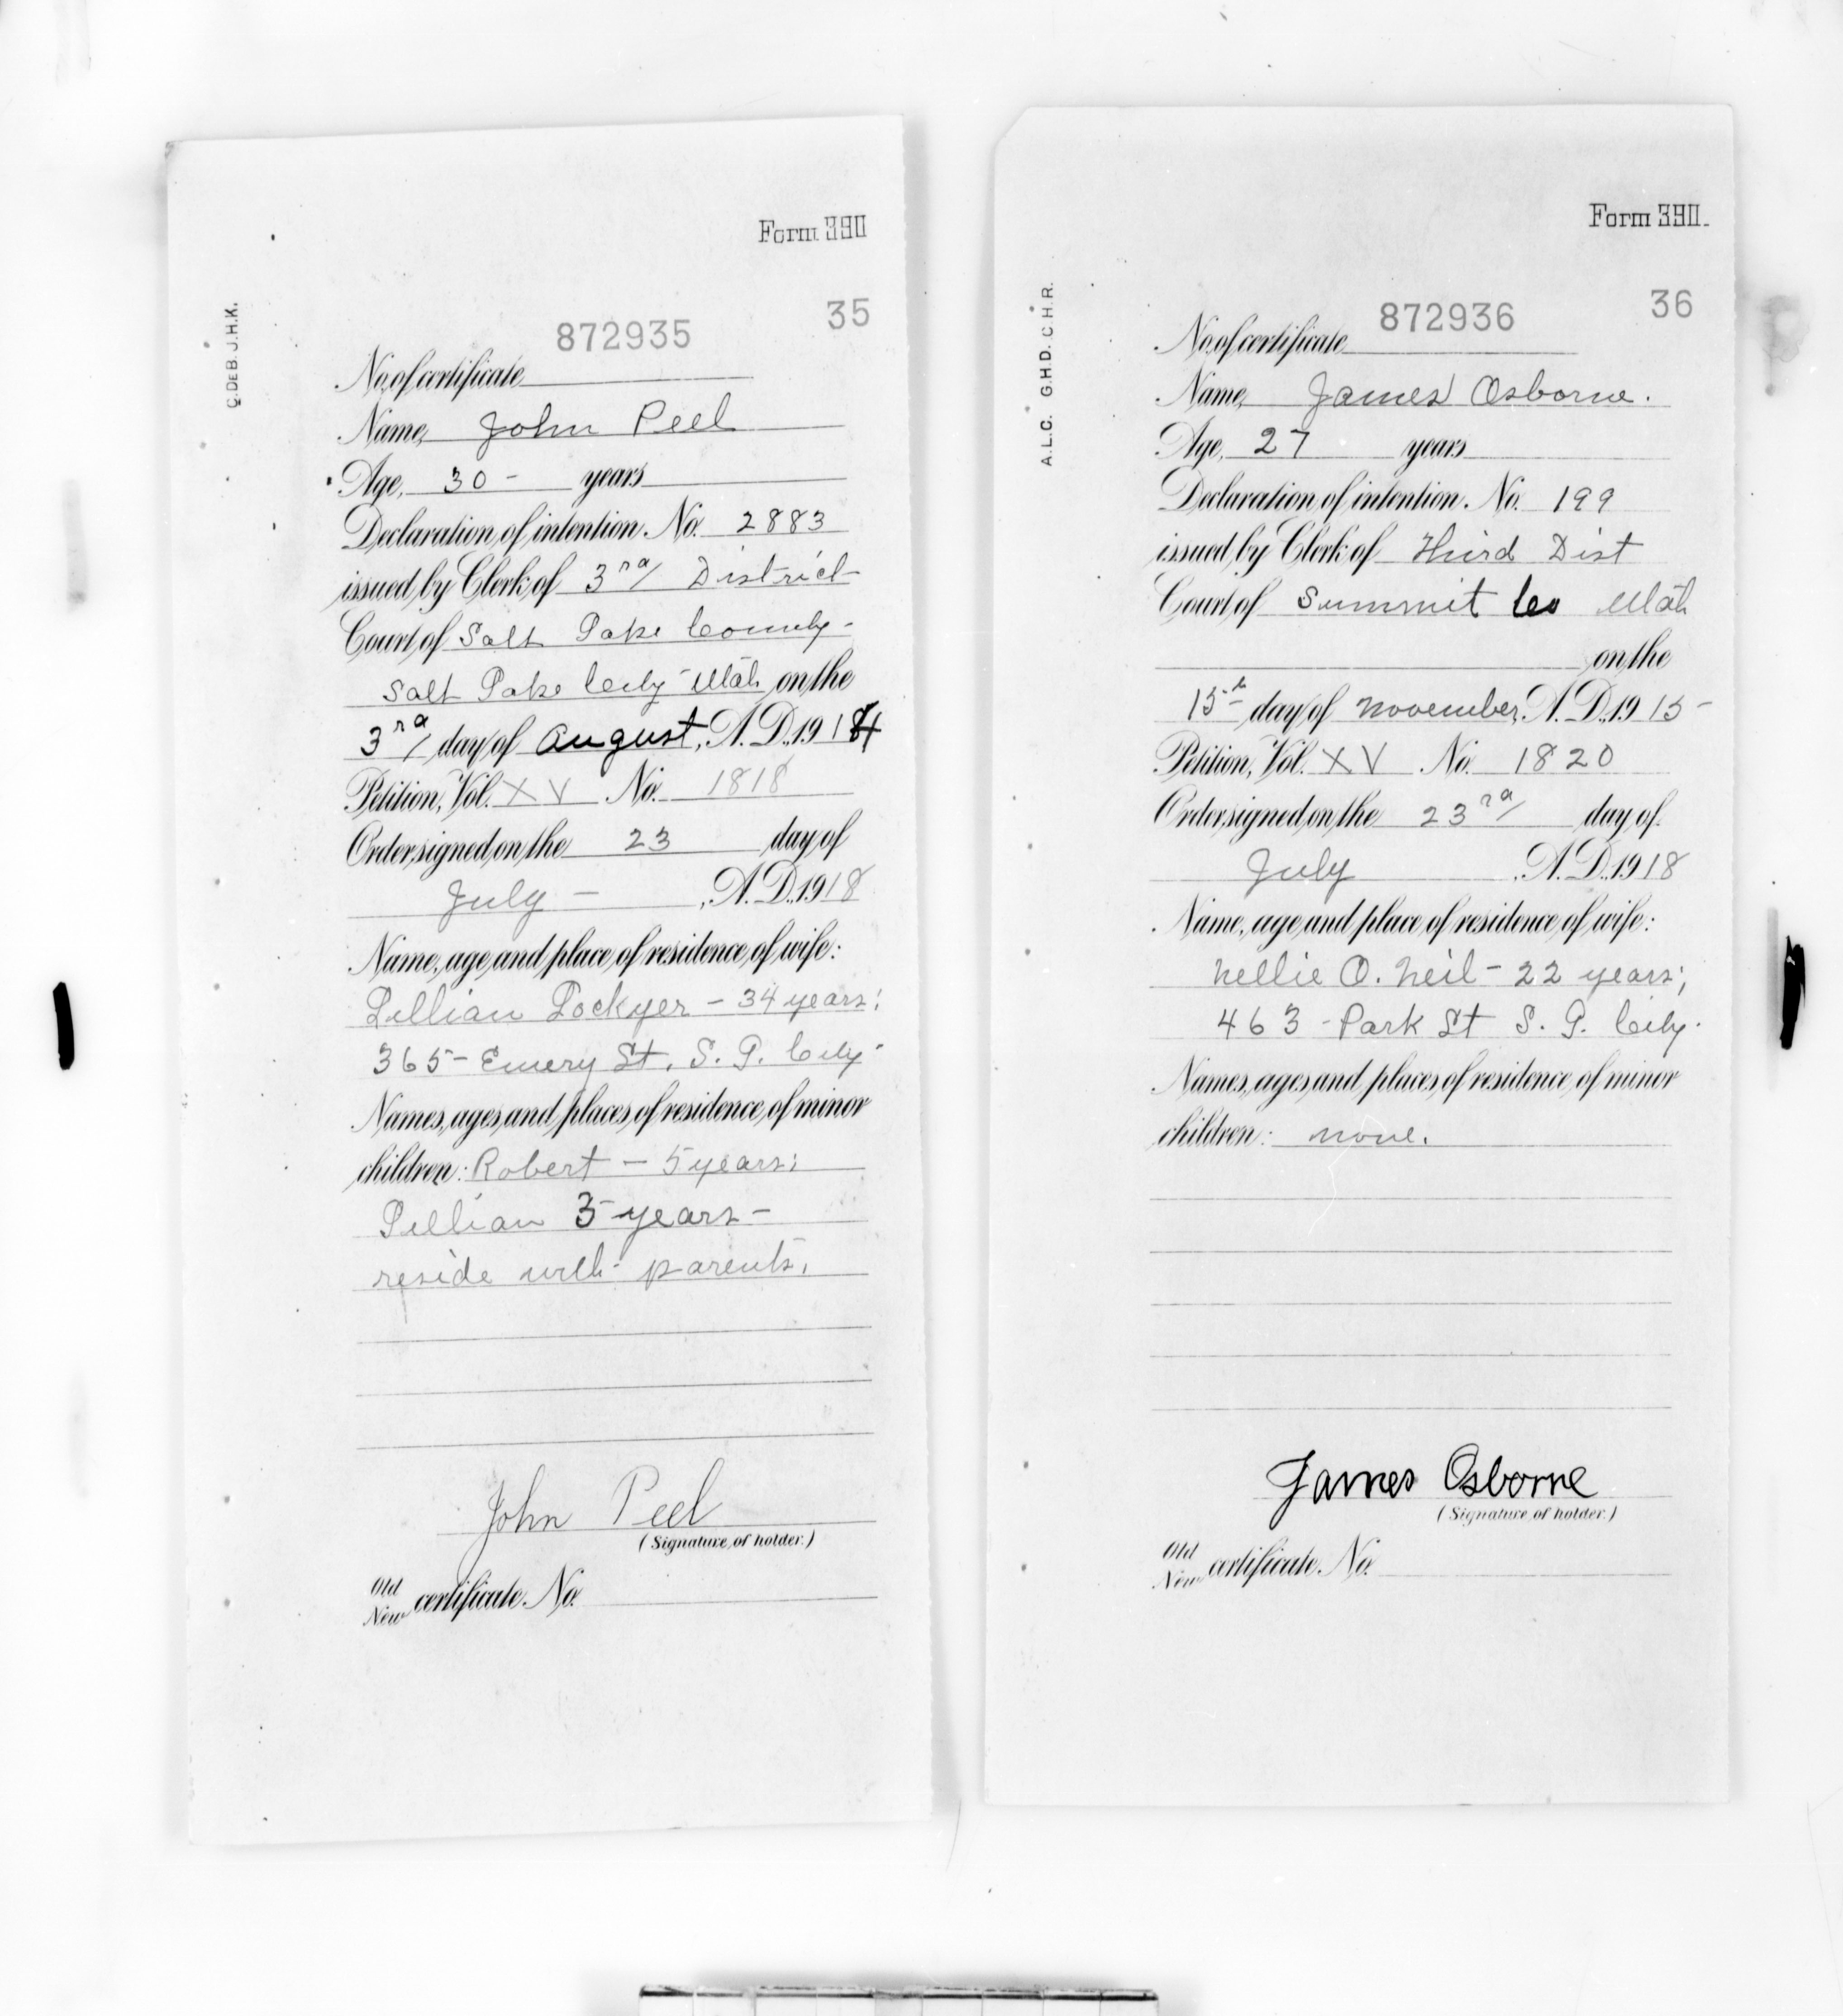 Form 390
C. DE B. J.H.K.
35
872935
No. of certificate
Name, John Peel
Age, 30 - years
Declaration of intention. No. 2883
issued by Clerk of 3rd District
Court of Salt Lake County -
Salt Lake City - Utah on the
3rd day of August, A. D. 1914
Petition, Vol. XV No. 1818
Order signed on the 23 day of
July - , A. D. 1918
Name, age and place of residence of wife:
Lillian Lockyer - 34 years;
365 - Emery St. S. L. City -
Names, ages and places of residence of minor
children: Robert - 5 years;
Lillian 3 years -
reside with parents.
John Peel
(Signature of holder.)
Old
New certificate. No.
Form 390.
A.L.C. G.H.D. C.H.R.
36
872936
No. of certificate
Name, James Osborne.
Age, 27 years
Declaration of intention. No. 199
issued by Clerk of Third Dist
Court of Summit Co Utah
on the
15th day of November, A. D. 1915 -
Petition, Vol. XV No. 1820
Order signed on the 23rd day of
July , A. D. 1918
Name, age and place of residence of wife:
Nellie O. Neil - 22 years;
463 - Park St S. L. City.
Names, ages and places of residence of minor
children: none.
James Osborne
(Signature of holder.)
Old
New certificate. No.